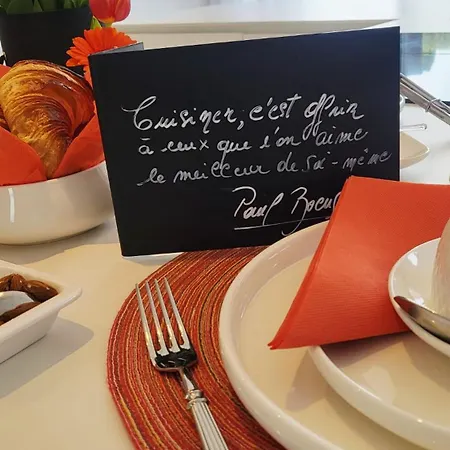 Cuisiner, c'est offrir
à ceux que l'on aime
le meilleur de soi-même
Paul Bocu